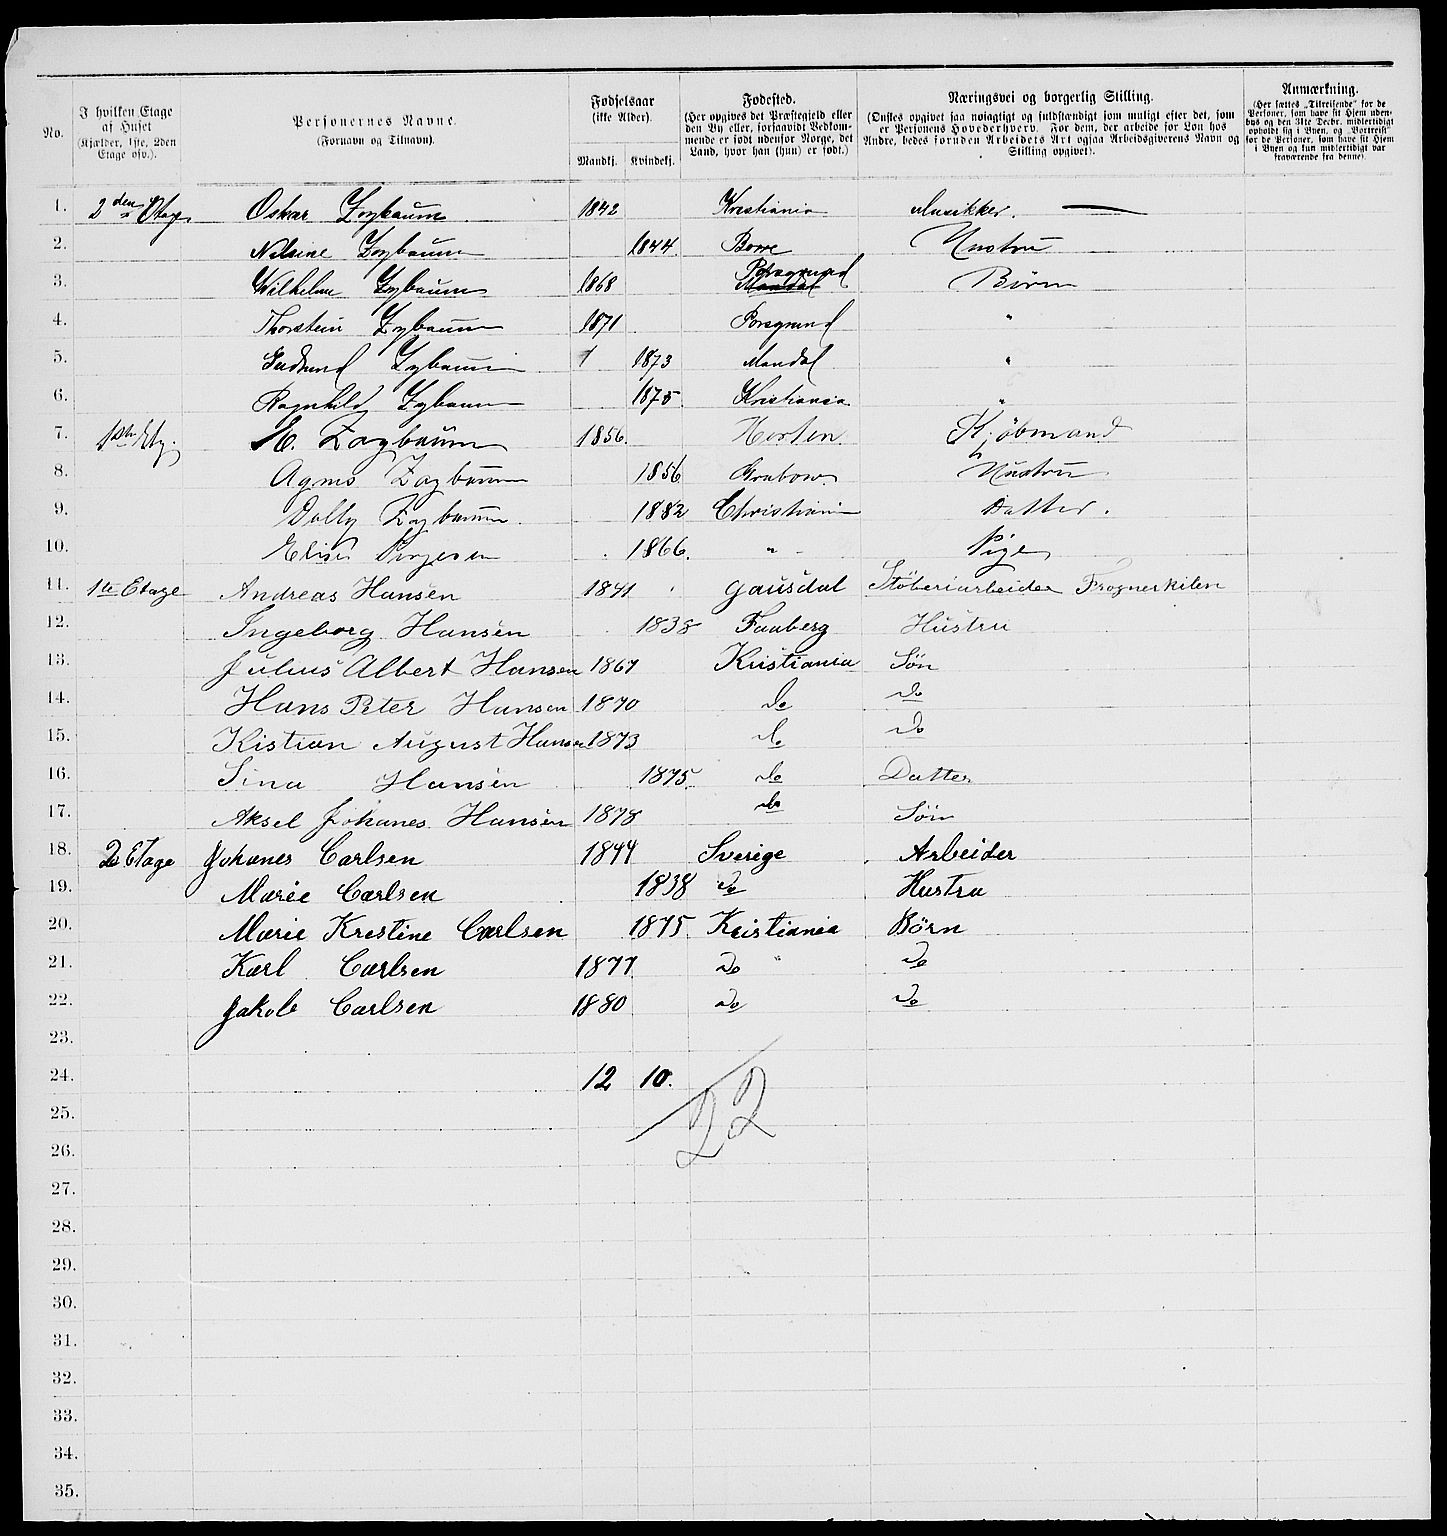 No.
I hvilken Etage af Huset (Kjælder, 1ste, 2den Etage osv.).
Personernes Navne. (Fornavn og Tilnavn).
Fødselsaar (ikke Alder).
Mandkj. Kvindekj.
Fødested. (Her opgives det Præstegjeld eller den By eller, forsaavidt Vedkommende er født udenfor Norge, det Land, hvor han (hun) er født.)
Næringsvei og borgerlig Stilling. (Ønskes opgivet saa nøiagtigt og fuldstændigt som muligt efter det, som er Personens Hovederhverv. For dem, der arbeide for Løn hos Andre, bedes foruden Arbeidets Art ogsaa Arbeidsgiverens Navn og Stilling opgivet).
Anmærkning. (Her sættes „Tilreisende" for de Personer, som have sit Hjem udenbys og den 31te Decbr. midlertidigt opholdt sig i Byen, og „Bortreist" for de Personer, som have sit Hjem i Byen og kun midlertidigt var fraværende fra denne).
1. 2den Etage Oskar Zoybaum 1842 Kristiania Musikker.
2. Nilsine Zoybaum 1844 Borre Hustru
3. Wilhelm Zoybaum 1868 Porsgrund Mandal Børn
4. Thorstein Zoybaum 1871 Porsgrund "
5. Gudrund Zoybaum 1 1873 Mandal "
6. Ragnhild Zoybaum 1875 Kristiania "
7. 1ste Etg. M. Zoybaum 1856. Horten Kjøbmand
8. Agnes Zoybaum 1856 Grabow Hustru
9. Dolly Zoybaum. 1882 Christiania Datter.
10. Elise 1866. " - Pige
11. 1te Etage Andreas Hansen 1841 Gausdal Støberiarbeider Frognerkilen
12. Ingeborg Hansen 1838 Faaberg Hustru
13. Julius Albert Hansen 1867 Kristiania Søn
14. Hans Peter Hansen 1870 Do Do
15. Kistian August Hansen 1873 Do Do
16. Sina Hansen 1875 Do Datter
17. Aksel Johanes Hansen 1878 Do Søn
18. 2 Etage Johanes Carlsen 1844 Sverige Arbeider
19. Marie Carlsen 1838 Do Hustru
20. Marie Krestine Carlsen 1875 Kristiania Børn
21. Karl Carlsen 1877 Do " Do
22. Jakob Carlsen 1880 Do Do
23.
24. 12 10.
22
25.
26.
27.
28.
29.
30.
31.
32.
33.
34.
35.